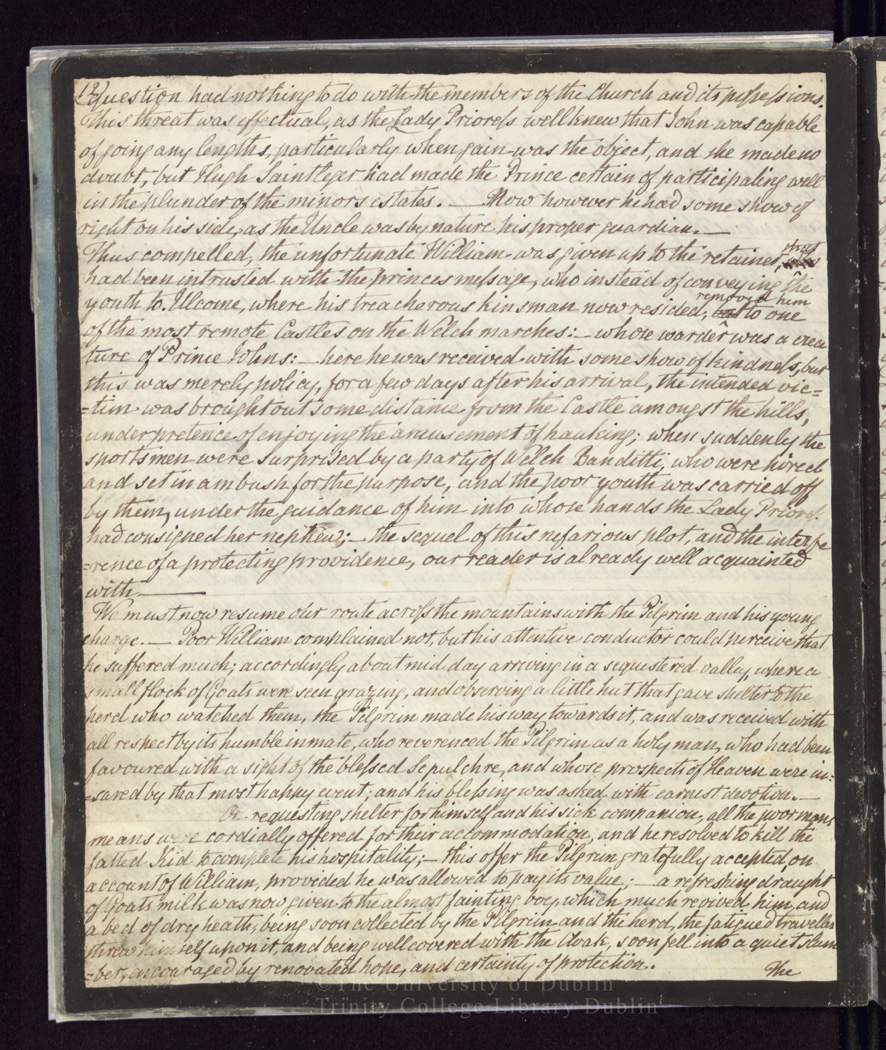 12) question had nothing to do with the members of the Church and its possessions.
This threat was effectual, as the Lady Prioress well knew that John was capable
of going any lengths, particularly when gain was the object, and she made no
doubt, but Hugh Saintleger had made the Prince certain of participating well
in the plunder of the minors estates. — Now however he had some show of
right on his side, as the Uncle was by nature his proper guardian. —
Thus compelled, the unfortunate William was given up to the retainer, that
had been intrusted with the princes message, who instead of conveying the
youth to Ulcome, where his treacherous kinsman now resided, removed him to one
of the most remote Castles on the Welch marches: — whose warder was a crea
ture of Prince Johns: — here he was received with some show of kindness, but
this was merely policy, for a few days after his arrival, the intended vic=
=tim was brought out some distance from the Castle amongst the hills,
under pretence of enjoying the amusement of hauking; when suddenly the
sportsmen were surprised by a party of Welch Banditti, who were hired
and set in ambush for the purpose, and the poor youth was carried off
by them, under the guidance of him into whose hands the Lady Prioress
had consigned her nephew; — the sequel of this nefarious plot, and the interfe
=rence of a protecting providence, our reader is already well acquainted
with. —
We must now resume our route across the mountains with the Pilgrim and his young
charge. — Poor William complained not, but his attentive conductor could perceive that
he suffered much; accordingly about mid day arriving in a sequestered valley, where a
small flock of Goats were seen grazing, and observing a little hut that gave shelter to the
herd who watched them, the Pilgrim made his way towards it, and was received with
all respect by its humble inmate, who reverenced the Pilgrim as a holy man, who had been
favoured with a sight of the blessed Sepulchre, and whose prospects of Heaven were in=
=sured by that most happy event; and his blessing was asked with earnest devotion. —
On requesting shelter for himself and his sick companion, all the poor mans
means were cordially offered for their accommodation, and he resolved to kill the
fatted Kid to complete his hospitality; — this offer the Pilgrim gratefully accepted, on
account of William, provided he was allowed to pay its value; — a refreshing draught
of Goats milk was now given to the almost fainting boy, which much revived him, and
a bed of dry heath, being soon collected by the Pilgrim and the herd, the fatigued traveller
threw himself upon it, and being well covered with the Cloak, soon fell into a quiet slum
=ber, encouraged by renovated hope, and certainty of protection.
The
©The University of Dublin
Trinity College Library Dublin